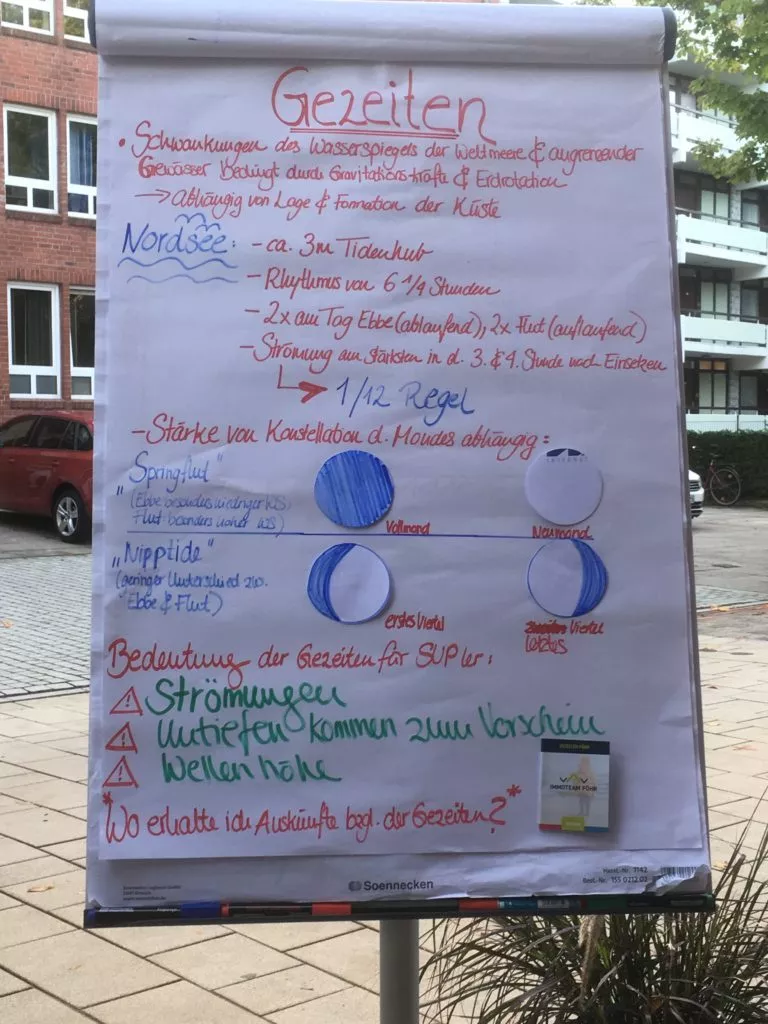 Gezeiten
• Schwankungen des Wasserspiegels der Weltmeere & angrenzender
Gewässer Bedingt durch Gravitationskräfte & Erdrotation
→ Abhängig von Lage & Formation der Küste
Nordsee: - ca. 3m Tidenhub
- Rhythmus von 6 1/4 Stunden
- 2x am Tag Ebbe (ablaufend), 2x Flut (auflaufend)
- Strömung am Stärksten in d. 3. & 4. Stunde nach Einsetzen
1/12 Regel
- Stärke von Konstellation d. Mondes abhängig:
"Springflut"
(Ebbe besonders niedriger WS,
Flut besonders hoher WS)
Vollmond
Neumond
"Nipptide"
(geringer Unterschied zw.
Ebbe & Flut)
erstes Viertel
Viertel
letztes
Bedeutung der Gezeiten für SUP'ler:
Strömungen
Untiefen kommen zum Vorschein
Wellenhöhe
*Wo erhalte ich Auskünfte bzgl. der Gezeiten?*
IMMOTEAM FÖHR
Soennecken
Herst.-Nr. 7142
Best.-Nr. 155 0212 02